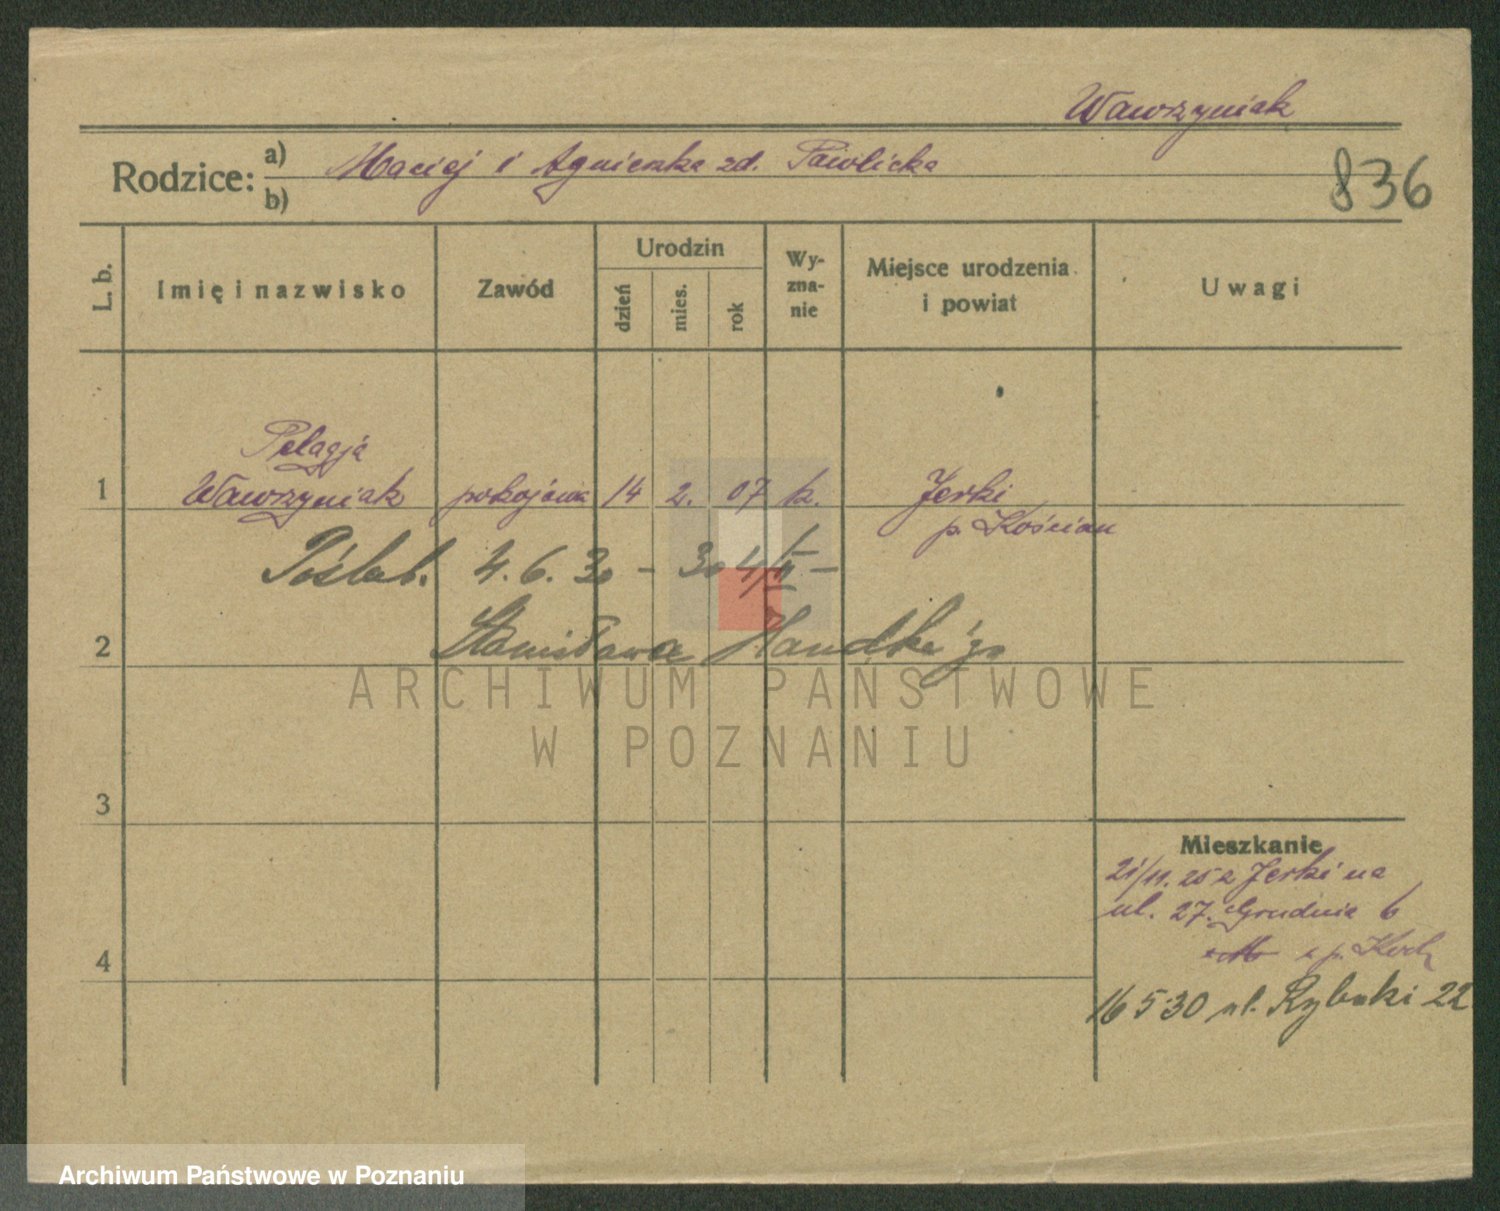 Wawrzyniak
Rodzice: a) Maciej i Agnieszka zd. Pawlicka
b)
836
L. b.
Imię i nazwisko
Zawód
Urodzin
dzień
mies.
rok
Wy-
zna-
nie
Miejsce urodzenia
i powiat
Uwagi
Pelagja
1 Wawrzyniak pokojowa 14 2. 07 k. Jerki
p. Kościan
Poślub. 4. 6. 30 – 30 4/II –
2 Stanisława Handke'go
ARCHIWUM PAŃSTWOWE
W POZNANIU
3
Mieszkanie
21/11. 25 z Jerki na
ul. 27. Grudnia 6
p. Koch
4
16 5 30 ul. Rybaki 22
Archiwum Państwowe w Poznaniu